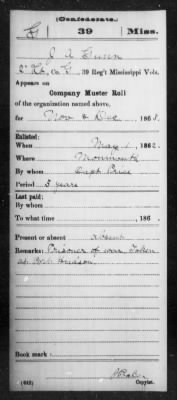 (Confederate.)
39 Miss.
J A Gunn
2" Lt, Co G, 39 Reg't Mississippi Vols.
Appears on
Company Muster Roll
of the organization named above,
for Nov & Dec, 1863.
Enlisted:
When May 1, 1862.
Where Monmouth
By whom Capt Price
Period 3 years
Last paid:
By whom
To what time , 186 .
Present or absent Absent
Remarks: Prisoner of war Taken
at Port Hudson.
Book mark:
(642)
Copyist.